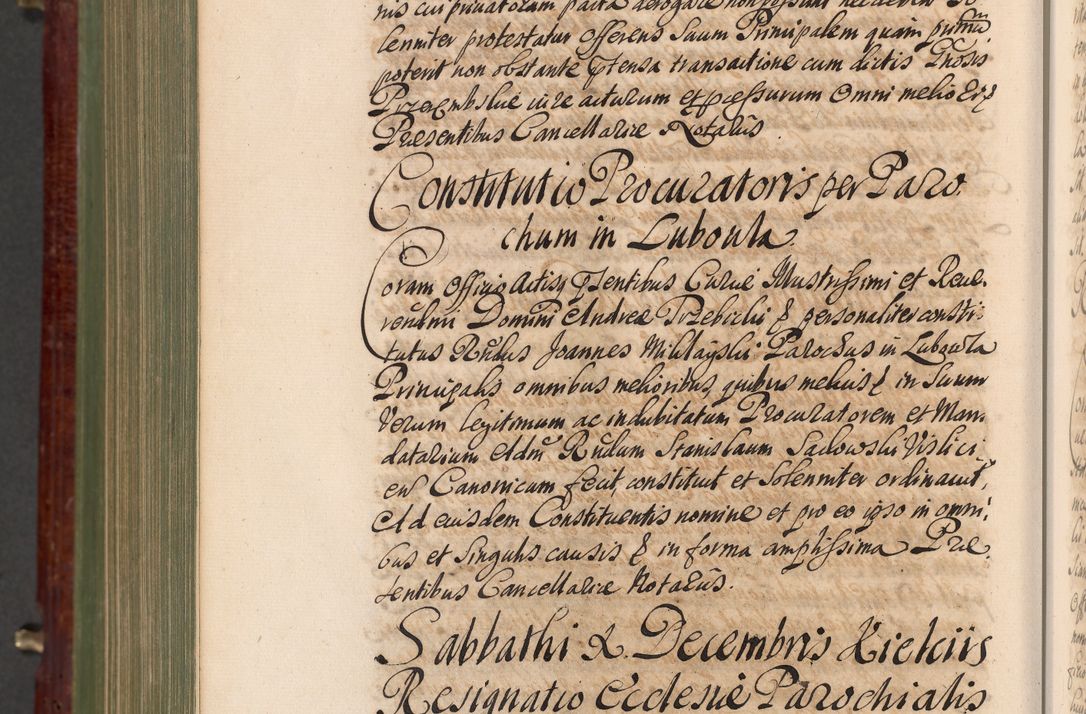 nis cui privatorum pacta derogare non possunt
lenniter protestatur offerens Suum Principalem quam primū
poterit non obstante ptensa transactione cum dictis Gnosis
Przerembskie iure acturum et pcessurum Omni meliori
Præsentibus Cancellariæ Notarijs
Constitutio Procuratoris per Paro
chum in Lubowla
Coram Officio Actisq pntibus Curiæ Illustrissimi et Reve-
rendmi Domini Andreæ Trzebicki & personaliter consti-
tutus Rndus Joannes Mikłayski Parochus in Lubowla
Principalis omnibus melioribus, quibus melius & in Suum
Verum legitimum ac indubitatum Procuratorem et Man-
datarium Adm Rndum Stanislaum Sadowski Vislici
en Canonicum fecit, constituit et Solenniter ordinavit,
Ad eiusdem Constituentis nomine et pro eo ipso in omni-
bus et Singulis causis & in forma amplissima Præ
sentibus Cancellariæ Notarijs.
Sabbathi 2 Decembris Kielcijs
Resignatio Ecclesiæ Parochialis